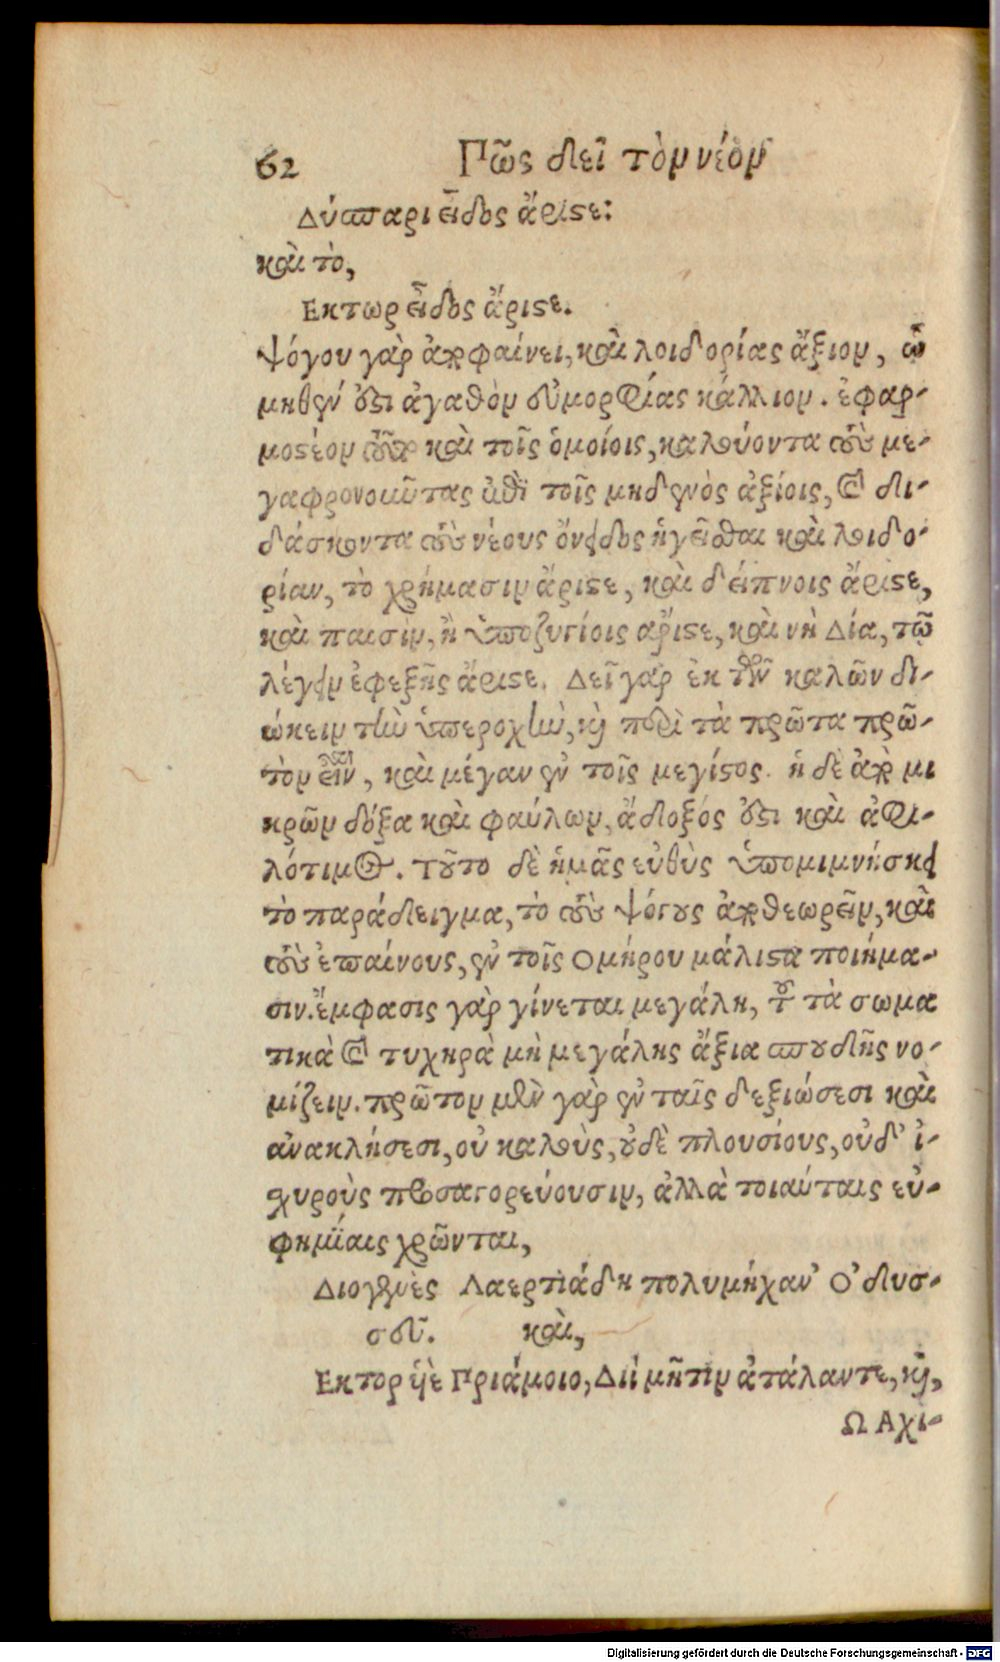 62 Πῶς δεῖ τὸν νέον
Δύσπαρι εἶδος ἄριστε:
καὶ τὸ,
Εκτωρ εἶδος ἄριστε.
ψόγου γὰρ ἀποφαίνει, καὶ λοιδορίας ἄξιον, ᾧ
μηθέν ἐστι ἀγαθὸν εὐμορφίας κάλλιον. ἐφαρ-
μοστέον τοῦτο καὶ τοῖς ὁμοίοις, κολούοντα τοὺς με-
γαφρονοιῦτας ἐπὶ τοῖς μηδενὸς ἀξίοις, καὶ δι-
δάσκοντα τοὺς νέους ὄνειδος ἡγεῖσθαι καὶ λοιδο-
ρίαν, τὸ χρήμασιν ἄριστε, καὶ δείπνοις ἄριστε,
καὶ παισὶν, ἢ ὑποζυγίοις ἄριστε, καὶ νὴ Δία, τῷ
λέγειν ἐφεξῆς ἄριστε. Δεῖ γὰρ ἐκ τῶν καλῶν δι-
ώκειν τὴν ὑπεροχὴν, καὶ περὶ τὰ πρῶτα πρῶ-
τον εἶναι, καὶ μέγαν ἐν τοῖς μεγίστος. ἡ δὲ ἀπὸ μι
κρῶν δόξα καὶ φαύλων, ἄδοξός ἐστι καὶ ἀφι-
λότιμος. Τοῦτο δὲ ἡμᾶς εὐθὺς ὑπομιμνήσκει
τὸ παράδειγμα, τὸ τοὺς ψόγους ἀποθεωρεῖν, καὶ
τοὺς ἐπαίνους, ἐν τοῖς Ομήρου μάλιστα ποιήμα-
σιν. ἔμφασις γὰρ γίνεται μεγάλη, τοῦ τὰ σωμα
τικὰ καὶ τυχηρὰ μὴ μεγάλης ἄξια σπουδῆς νο-
μίζειν. πρῶτον μὲν γὰρ ἐν ταῖς δεξιώσεσι καὶ
ἀνακλήσεσι, οὐ καλοὺς, οὐδὲ πλουσίους, οὐδ' ἰ-
σχυροὺς προσαγορεύουσιν, ἀλλὰ τοιαύταις εὐ-
φημίαις χρῶνται,
Διογενὲς Λαερτιάδη πολυμήχαν' Ὀδυσ-
σεῦ. καὶ,
Εκτορ ὑὲ Πριάμοιο, Διὶ μῆτιν ἀτάλαντε, καὶ,
Ω Αχι-
Digitalisierung gefördert durch die Deutsche Forschungsgemeinschaft - DFG